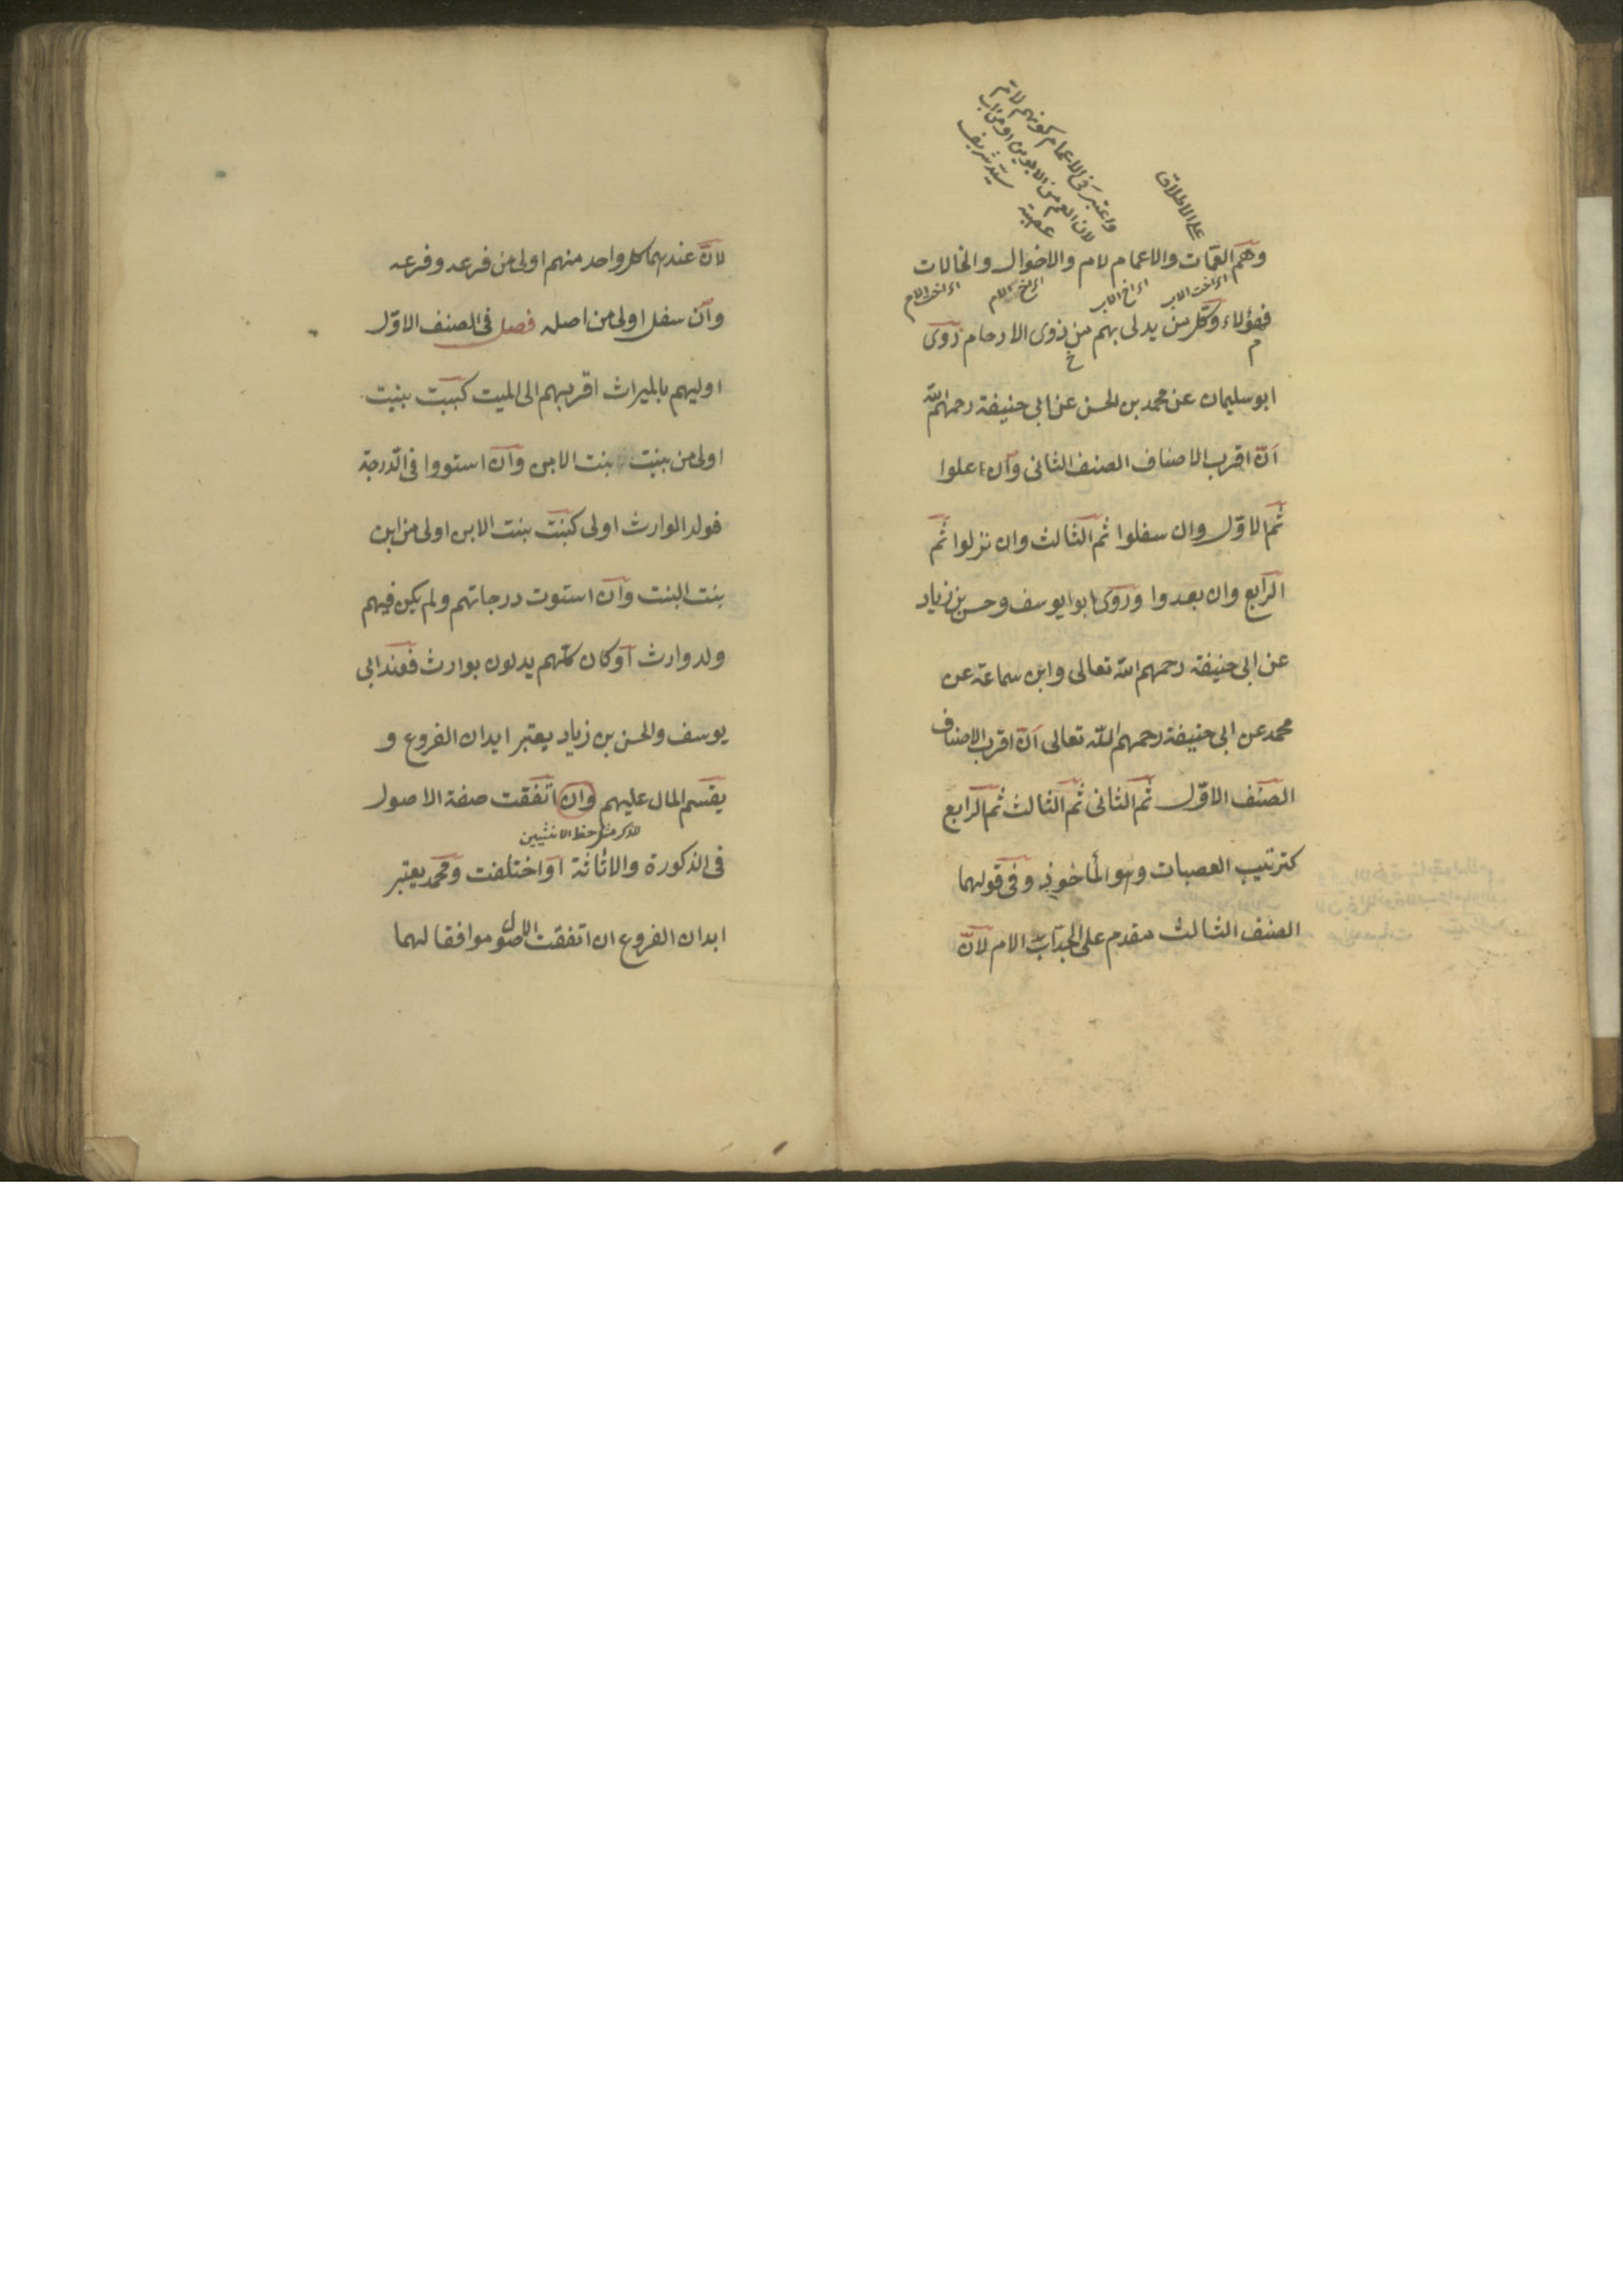 واعتبر في الاعمام كونهم لام
لان العم من الابوين او من اب
عصبة سيد شريف
على الاطلاق
وهم العمات والاعمام لام والاخوال والخالات
اى اخت الاب اى اخ الاب اى اخ الام اى اخت الام
فهؤلاء وكل من يدلى بهم من ذوى الارحام روى
ابو سليمان عن محمد بن الحسن عن ابى حنيفة رحمهم الله
ان اقرب الاصناف الصنف الثانى وان علوا
ثم الاول وان سفلوا ثم الثالث وان نزلوا ثم
الرابع وان بعدوا وروى ابو ايوسف وحسن بن زياد
عن ابى حنيفة رحمهم الله تعالى وابن سماعة عن
محمد عن ابى حنيفة رحمهم الله تعالى ان اقرب الاصناف
الصنف الاول ثم الثانى ثم الثالث ثم الرابع
كترتيب العصبات وهو المأخوذ وفى قولهما
الصنف الثالث مقدم على الجد اب الام لان
لان عندهما كل واحد منهم اولى من فرعه وفرعه
وان سفل اولى من اصله فصل فى الصنف الاول
اوليهم بالميراث اقربهم الى الميت كبنت بنت
اولى من بنت بنت الابن وان استووا فى الدرجة
فولد الوارث اولى كبنت بنت الابن اولى من ابن
بنت البنت وان استوت درجاتهم ولم يكن فيهم
ولد وارث او كان كلهم يدلون بوارث فعند ابى
يوسف والحسن بن زياد يعتبر ابدان الفروع و
يقسم المال عليهم وان اتفقت صفة الاصول
للذكر مثل حظ الانثيين
فى الذكورة والاناثة او اختلفت ومحمد يعتبر
ابدان الفروع ان اتفقت الاصول موافقا لهما